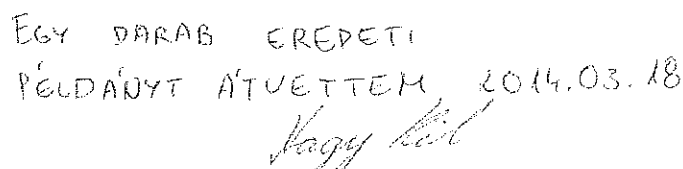 EGY DARAB EREDETI
PÉLDÁNYT ÁTVETTEM 2014.03.18
Nagy